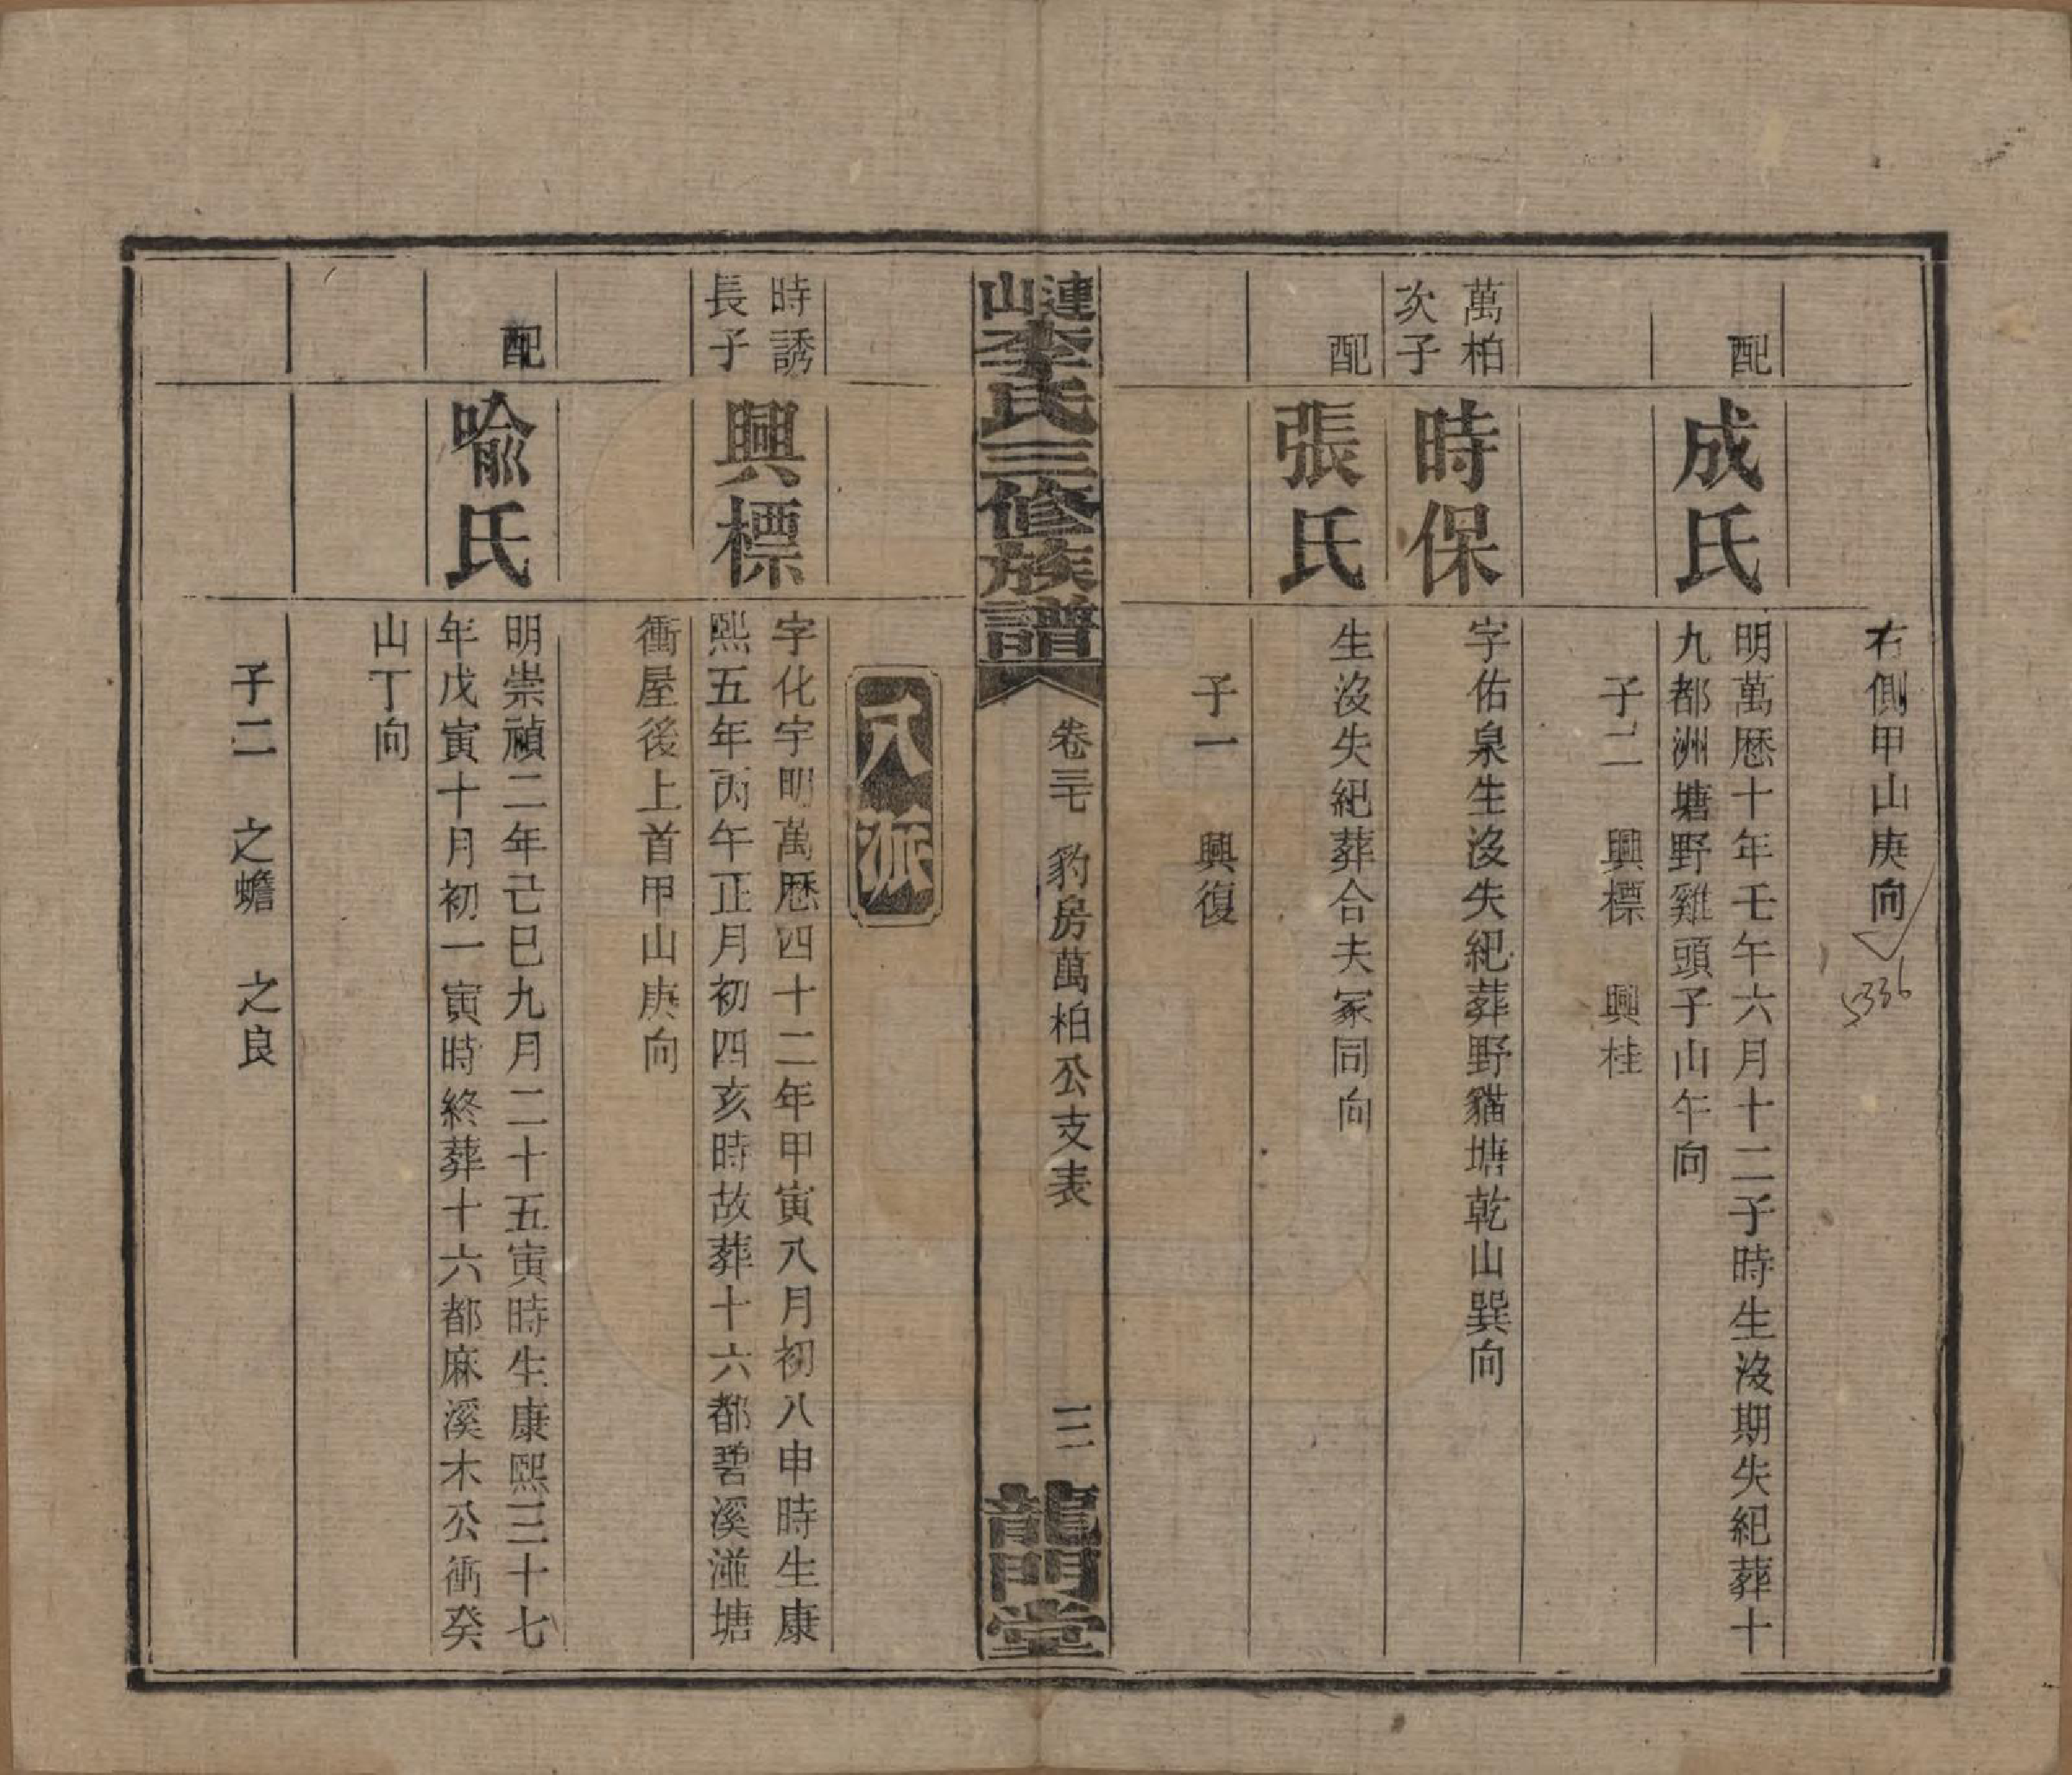 右側甲山庚向
5336
配
成氏
明萬曆十年壬午六月十二子時生沒期失紀葬十
九都洲塘野雞頭子山午向
子二　興標　興桂
萬柏
次子
時保
字佑泉生沒失紀葬野貓塘乾山巽向
配
張氏
生沒失紀葬合夫冢同向
子一　興復
連山李氏三修族譜
卷三七　豹房萬柏公支表
三
龍門堂
八派
時誘
長子
興標
字化宇明萬曆四十二年甲寅八月初八申時生康
熙五年丙午正月初四亥時故葬十六都碧溪湴塘
衝屋後上首甲山庚向
配
喻氏
明崇禎二年己巳九月二十五寅時生康熙三十七
年戊寅十月初一寅時終葬十六都麻溪木公衝癸
山丁向
子二　之蟾　之良